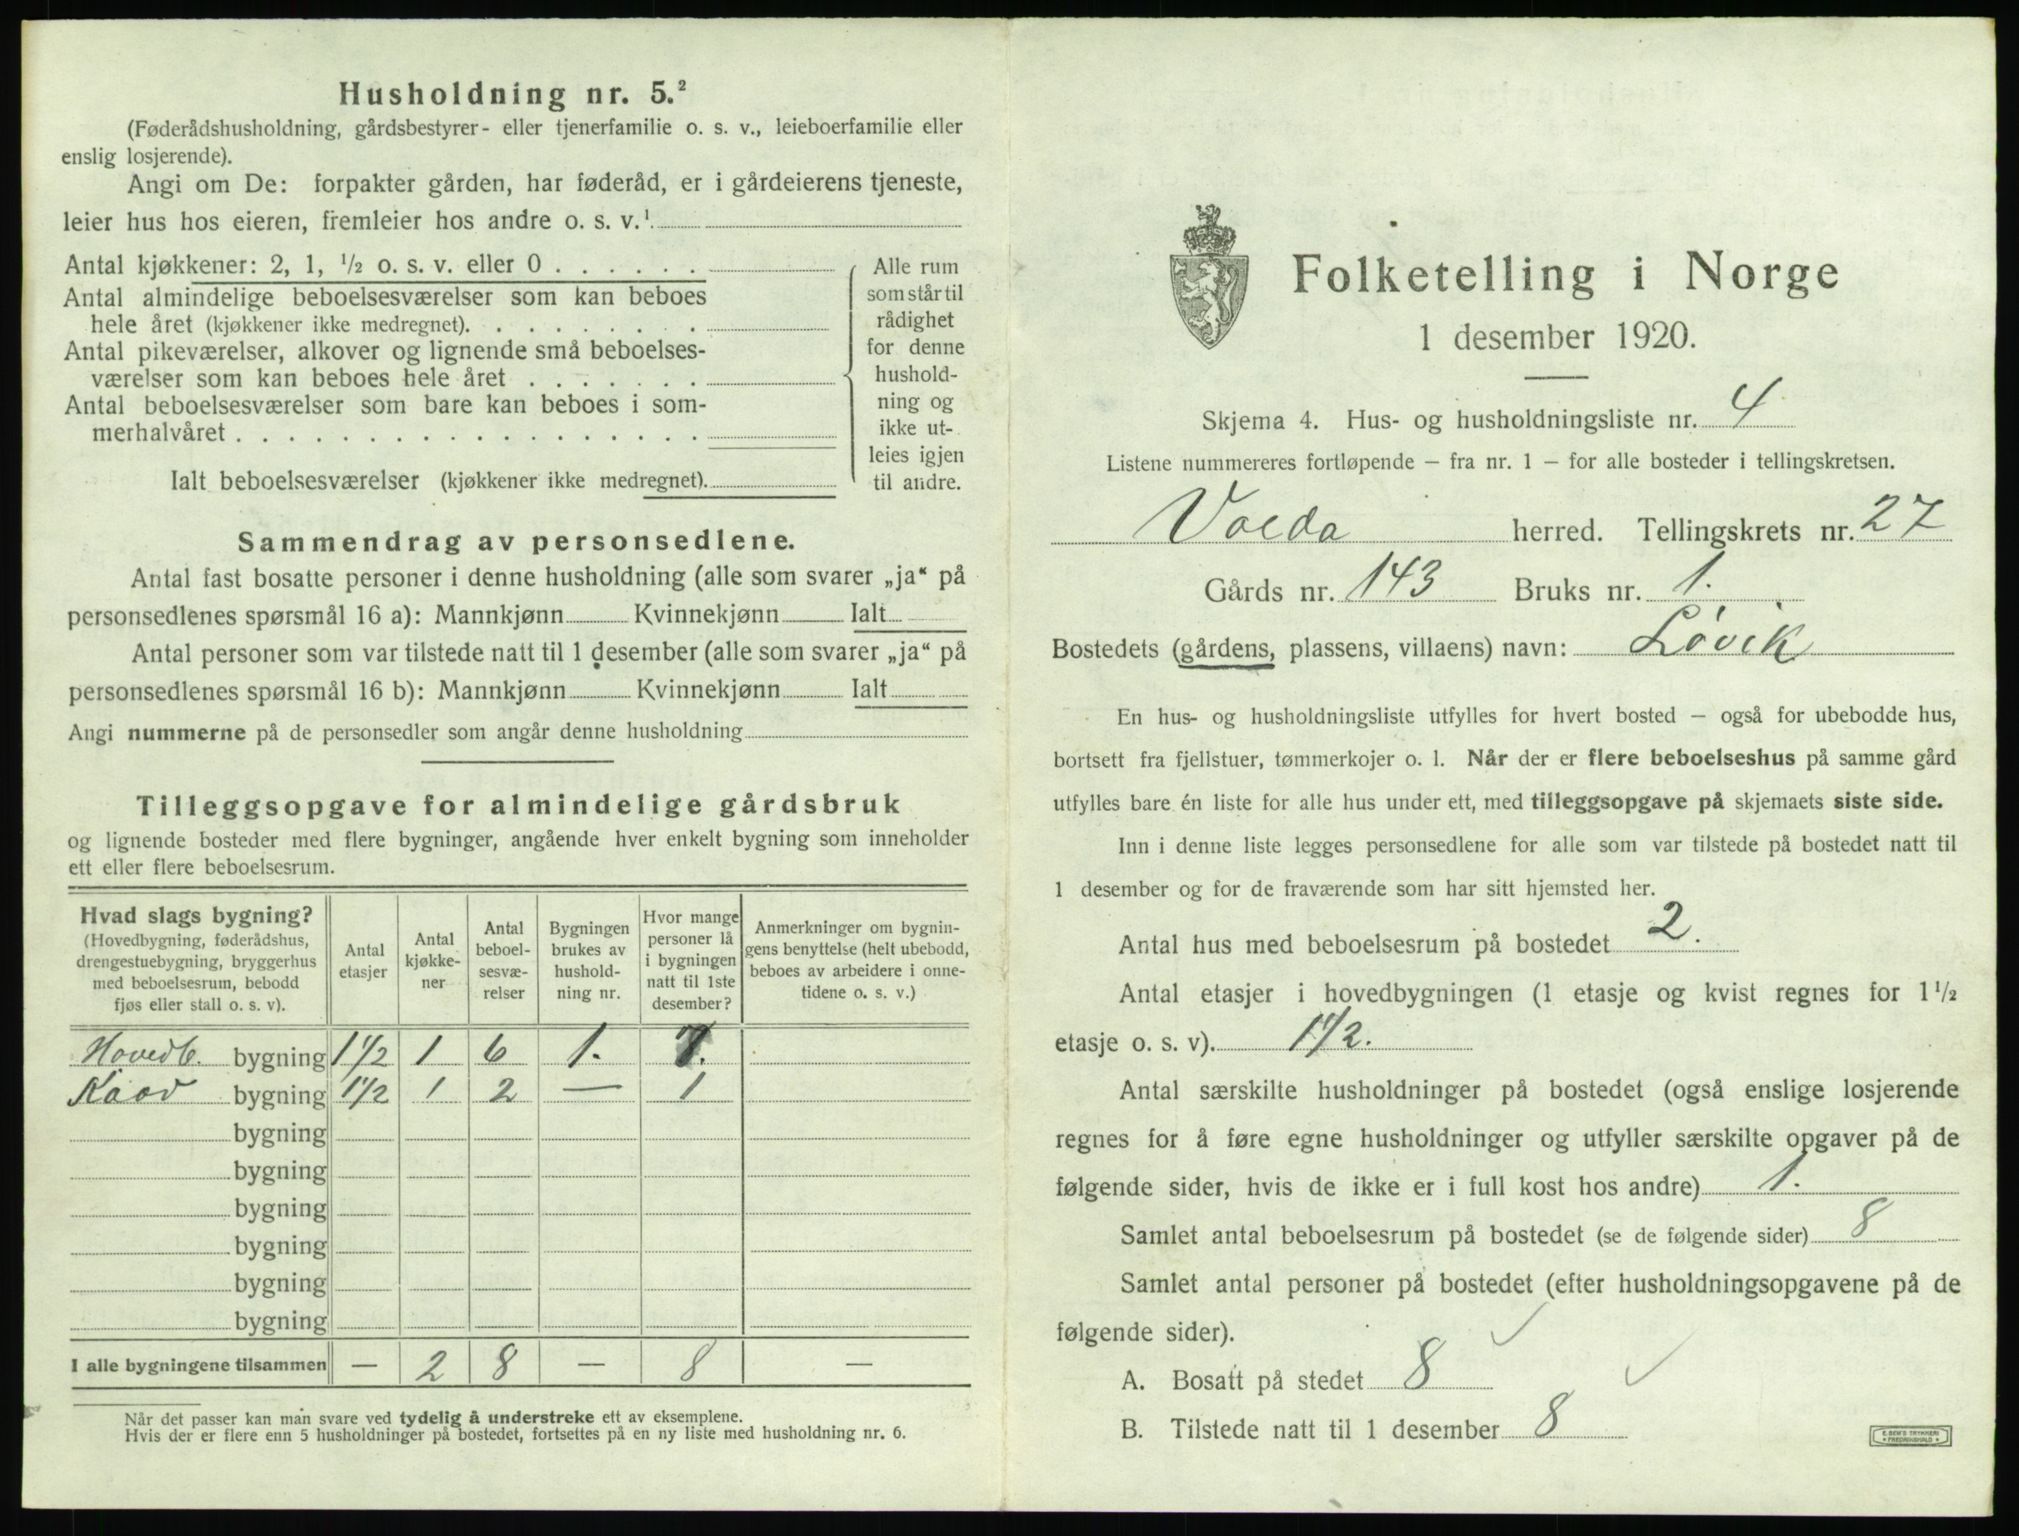 Husholdning nr. 5.²
(Føderådshusholdning, gårdsbestyrer- eller tjenerfamilie o. s. v., leieboerfamilie eller
enslig losjerende).
Angi om De: forpakter gården, har føderåd, er i gårdeierens tjeneste,
leier hus hos eieren, fremleier hos andre o. s. v.¹
Antal kjøkkener: 2, 1, ½ o. s. v. eller 0
Antal almindelige beboelsesværelser som kan beboes
hele året (kjøkkener ikke medregnet).
Antal pikeværelser, alkover og lignende små beboelses-
værelser som kan beboes hele året
Antal beboelsesværelser som bare kan beboes i som-
merhalvåret
Ialt beboelsesværelser (kjøkkener ikke medregnet).
Alle rum
som står til
rådighet
for denne
hushold-
ning og
ikke ut-
leies igjen
til andre.
Sammendrag av personsedlene.
Antal fast bosatte personer i denne husholdning (alle som svarer „ja“ på
personsedlenes spørsmål 16 a): Mannkjønn Kvinnekjønn Ialt
Antal personer som var tilstede natt til 1 desember (alle som svarer „ja“ på
personsedlenes spørsmål 16 b): Mannkjønn Kvinnekjønn Ialt
Angi nummerne på de personsedler som angår denne husholdning
Tilleggsopgave for almindelige gårdsbruk
og lignende bosteder med flere bygninger, angående hver enkelt bygning som inneholder
ett eller flere beboelsesrum.
Hvad slags bygning?
(Hovedbygning, føderådshus,
drengestuebygning, bryggerhus
med beboelsesrum, bebodd
fjøs eller stall o. s. v).
Antal
etasjer
Antal
kjøkke-
ner
Antal
beboel-
sesvæ-
relser
Bygningen
brukes av
hushold-
ning nr.
Hvor mange
personer lå
i bygningen
natt til 1ste
desember?
Anmerkninger om bygnin-
gens benyttelse (helt ubebodd,
beboes av arbeidere i onne-
tidene o. s. v.)
Hovedb. bygning 1½ 1 6 1. 7.
Kaar bygning 1½ 1 2 — 1
bygning
bygning
bygning
bygning
bygning
bygning
I alle bygningene tilsammen — 2 8 — 8 —
Når det passer kan man svare ved tydelig å understreke ett av eksemplene.
Hvis der er flere enn 5 husholdninger på bostedet, fortsettes på en ny liste med husholdning nr. 6.
Folketelling i Norge
1 desember 1920.
Skjema 4. Hus- og husholdningsliste nr. 4
Listene nummereres fortløpende – fra nr. 1 – for alle bosteder i tellingskretsen.
Volda herred. Tellingskrets nr. 27
Gårds nr. 143 Bruks nr. 1.
Bostedets (gårdens, plassens, villaens) navn: Løvik
En hus- og husholdningsliste utfylles for hvert bosted – også for ubebodde hus,
bortsett fra fjellstuer, tømmerkojer o. l. Når der er flere beboelseshus på samme gård
utfylles bare én liste for alle hus under ett, med tilleggsopgave på skjemaets siste side.
Inn i denne liste legges personsedlene for alle som var tilstede på bostedet natt til
1 desember og for de fraværende som har sitt hjemsted her.
Antal hus med beboelsesrum på bostedet 2.
Antal etasjer i hovedbygningen (1 etasje og kvist regnes for 1½
etasje o. s. v). 1½.
Antal særskilte husholdninger på bostedet (også enslige losjerende
regnes for å føre egne husholdninger og utfyller særskilte opgaver på de
følgende sider, hvis de ikke er i full kost hos andre) 1.
Samlet antal beboelsesrum på bostedet (se de følgende sider) 8
Samlet antal personer på bostedet (efter husholdningsopgavene på de
følgende sider).
A. Bosatt på stedet 8
B. Tilstede natt til 1 desember 8
E. SEM'S TRYKKERI
• FREDRIKSHALD •